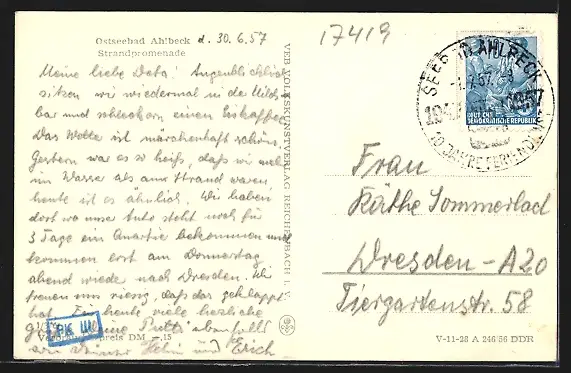 Ostseebad Ahlbeck d. 30.6.57
Strandpromenade
Meine liebe Data! Augenblicklich
sitzen wir wiedermal in der Milch-
bar und schleckern einen Eiskaffee.
Das Wetter ist märchenhaft schön.
Gestern war es so heiß, daß wir mehr
im Wasser als am Strand waren,
heute ist es ähnlich. Wir haben
dort wo unser Auto steht noch für
3 Tage ein Quartier bekommen und
kommen erst am Donnerstag
abend wieder nach Dresden. Wir
freuen uns riesig, daß das geklappt
hat. Für heute viele herzliche
Grüße meine Putti ebenfalls
von Deiner und Erich
PK III
Verbraucherpreis DM -.15
VEB VOLKSKUNSTVERLAG REICHENBACH I. V.
17419
SEEBAD AHLBECK
-1.7.57
1957
10 JAHRE FERIEN
DEUTSCHE
DEMOKRATISCHE REPUBLIK
Frau
Käthe Sommerlad
Dresden-A20
Tiergartenstr. 58
V-11-28 A 246/56 DDR